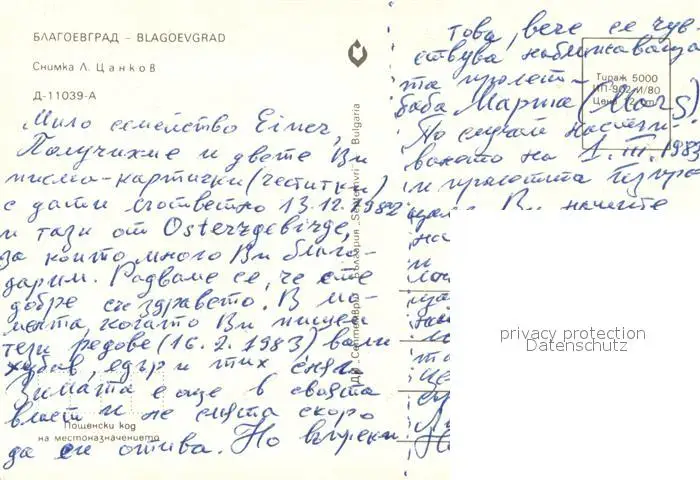 БЛАГОЕВГРАД – BLAGOEVGRAD
Снимка Л. Цанков
Д-11039-А
Мило семейство Eimer,
Получихме и двете Ви
писма-картички (честитки)
с дати съответно 13.12.1982
и тази от Osterzgebirge,
за които много Ви благо-
дарим. Радваме се, че сте
добре със здравето. В мо-
мента, когато Ви пишем
тези редове (16.2.1983) вали
хубав, едър и тих сняг.
Зимата е още в своята
власт и не счита скоро
да си отива. Но въпреки
Пощенски код
на местоназначението
ДП „Септември" България „Septemvri" Bulgaria
това, вече се чув-
ствува наближаваща
та пролет-
баба Марта (Mars)
По случай настъп-
ването на 1.III.1983
и пролетта
Ви
на
и
Тираж 5000
Цена
privacy protection
Datenschutz